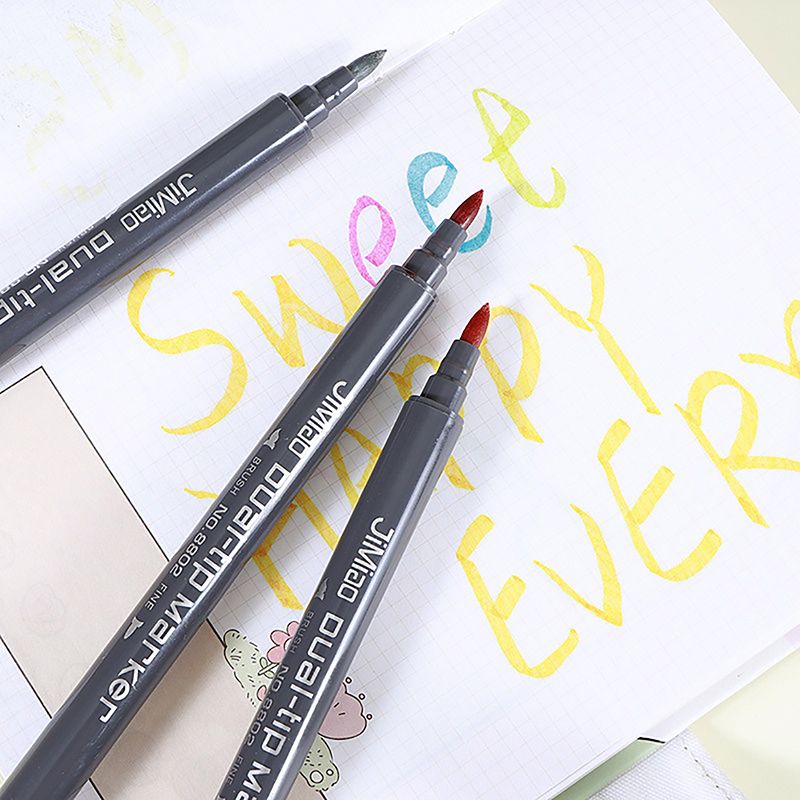 Sweet
HAPPY
EVERY
JiMiao DUaL-tip
JiMiao DUaL-tip Marker
BRUSH NO.8802 FINE
JiMiao DUaL-tip Ma
BRUSH NO.8802 FINE